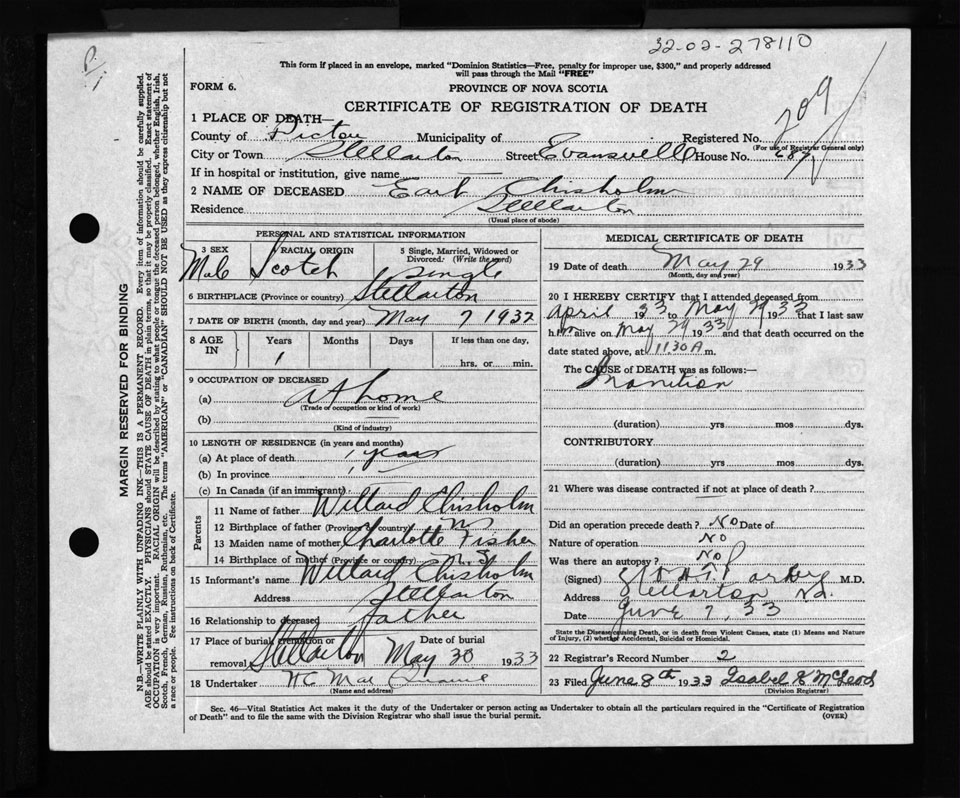 32-02-278110
P/1
This form if placed in an envelope, marked "Dominion Statistics—Free, penalty for improper use, $300," and properly addressed
will pass through the Mail "FREE"
FORM 6.
PROVINCE OF NOVA SCOTIA
209
CERTIFICATE OF REGISTRATION OF DEATH
1 PLACE OF DEATH—
County of Pictou Municipality of Registered No.
(For use of Registrar General only)
City or Town Stellarton Street Evansville House No. 687
If in hospital or institution, give name
2 NAME OF DECEASED Earl Chisholm
Residence Stellarton
(Usual place of abode)
PERSONAL AND STATISTICAL INFORMATION
3 SEX 4 RACIAL ORIGIN 5 Single, Married, Widowed or Divorced: (Write the word)
Male Scotch Single
6 BIRTHPLACE (Province or country) Stellarton
7 DATE OF BIRTH (month, day and year) May 7 1932
8 AGE IN Years Months Days If less than one day,
1 hrs. or min.
9 OCCUPATION OF DECEASED
(a) At home
(Trade or occupation or kind of work)
(b)
(Kind of industry)
10 LENGTH OF RESIDENCE (in years and months)
(a) At place of death 1 year
(b) In province 1
(c) In Canada (if an immigrant)
Parents
11 Name of father Willard Chisholm
12 Birthplace of father (Province or country) N S
13 Maiden name of mother Charlotte Fisher
14 Birthplace of mother (Province or country) N. S
15 Informant's name Willard Chisholm
Address Stellarton
16 Relationship to deceased father
17 Place of burial, cremation or removal Stellarton Date of burial May 30 1933
18 Undertaker
(Name and address)
MEDICAL CERTIFICATE OF DEATH
19 Date of death May 29 1933
(Month, day and year)
20 I HEREBY CERTIFY that I attended deceased from
April 1933 to May 29 1933 that I last saw
him alive on May 29 1933 and that death occurred on
date stated above, at 11.30 A m.
The CAUSE of DEATH was as follows:—
Inanition
(duration) yrs mos dys.
CONTRIBUTORY
(duration) yrs. mos. dys.
21 Where was disease contracted if not at place of death?
Did an operation precede death? No Date of
Nature of operation No
Was there an autopsy? No
(Signed) M.D.
Address Stellarton N.S.
Date June 7, 33
State the Disease causing Death, or in death from Violent Causes, state (1) Means and Nature
of Injury, (2) whether Accidental, Suicidal or Homicidal.
22 Registrar's Record Number 2
23 Filed June 8th 1933 Isabel K McLeod
(Division Registrar)
Sec. 46—Vital Statistics Act makes it the duty of the Undertaker or person acting as Undertaker to obtain all the particulars required in the "Certificate of Registration
of Death" and to file the same with the Division Registrar who shall issue the burial permit.
(OVER)
MARGIN RESERVED FOR BINDING
N.B.—WRITE PLAINLY WITH UNFADING INK—THIS IS A PERMANENT RECORD. Every item of information should be carefully supplied.
AGE should be stated EXACTLY. PHYSICIANS should STATE CAUSE OF DEATH in plain terms, so that it may be properly classified. Exact statement of
OCCUPATION is very important. RACIAL ORIGIN will be described by stating to what people or tongue the deceased person belonged, whether English, Irish,
Scotch, French, German, Russian, Ruthenian, etc. The terms "AMERICAN" or "CANADIAN" SHOULD NOT BE USED as they express citizenship but not
a race or people. See instructions on back of Certificate.